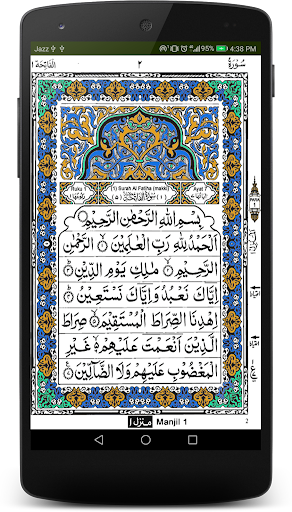 Jazz 95% 4:38 PM
الفَاتِحَة ١ ٢ سُوْرَةُ
Ruku 1 (1) Surah Al Fatiha (makki) Ayat 7
PARA 1
بِسْمِ اللهِ الرَّحْمٰنِ الرَّحِيْمِ
اَلْحَمْدُ لِلّٰهِ رَبِّ الْعٰلَمِيْنَ ۝ الرَّحْمٰنِ
الرَّحِيْمِ ۝ مٰلِكِ يَوْمِ الدِّيْنِ ۝
اِيَّاكَ نَعْبُدُ وَاِيَّاكَ نَسْتَعِيْنُ ۝
اِهْدِنَا الصِّرَاطَ الْمُسْتَقِيْمَ ۝ صِرَاطَ
الَّذِيْنَ اَنْعَمْتَ عَلَيْهِمْ ۝ غَيْرِ
الْمَغْضُوْبِ عَلَيْهِمْ وَلَا الضَّآلِّيْنَ ۝
منزل ١ Manjil 1 2